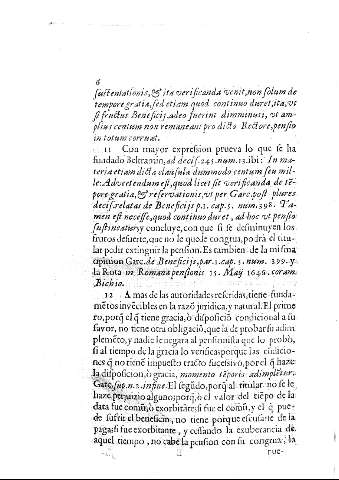 6
sustentationis, & ita verificanda venit, non solum de
tempore gratiæ, sed etiam quod continuo duret, ita, vt
si fructus Beneficij adeo fuerint dimminuti, vt am-
plius centum non remaneant pro dicto Rectore, pensio
in totum corruat.
11 Con mayor expresion prueva lo que se ha
fundado Beltramin, ad decis. 245. num. 13. ibi: In ma-
teria etiam dicta clausula dummodo centum seu mil-
le: Advertendum est, quod licet sit verificanda de tẽ-
pore gratiæ, & reservationis, vt per Garc. post plures
decis. relatas de Beneficijs p. 1. cap. 5. num. 398. Ta-
men est necesse, quod continuo duret, ad hoc vt pensio
sustineatur, y concluye, con que si se desminuyen los
frutos desuerte, que no le quede congrua, podrá el titu-
lar pedir extinguir la pension. Es tambien de la misma
opinion Garc. de Beneficijs, par. 1. cap. 5. num. 399. y
la Rota in Romana pensionis 15. Maij 1640. coram
Bichio.
12 A mas de las autoridades referidas, tiene funda-
mẽtos invẽcibles en la razõ juridica, y natural. El prime
ro, porq̃ el q̃ tiene gracia, ò disposiciõ condicional a su
favor, no tiene otra obligaciõ, que la de probar su adim
plemẽto, y nadie le negara al pensionista que lo probò,
si al tiempo de la gracia lo verificas porque las cõdicio-
nes q̃ no tienẽ impuesto tracto sucesivo, por el q̃ hace
la disposicion, ò gracia, momento tẽporis adimplẽtur.
Garc. sup. n. 2. in fine. El segũdo, porq̃ al titular no se le
haze perjuizio alguno; porq̃, ò el valor del tiẽpo de la
data fue comũ, ò exorbitãte: si fue el comũ, y el q̃ pue-
de sufrir el beneficio, no tiene porque escusarse de la
paga: si fue exorbitante, y cessando la exuberancia de
aquel tiempo, no cabe la pension con su congrua, la
rue-